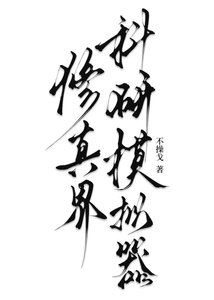 修真界
科研模拟器
不操戈 著